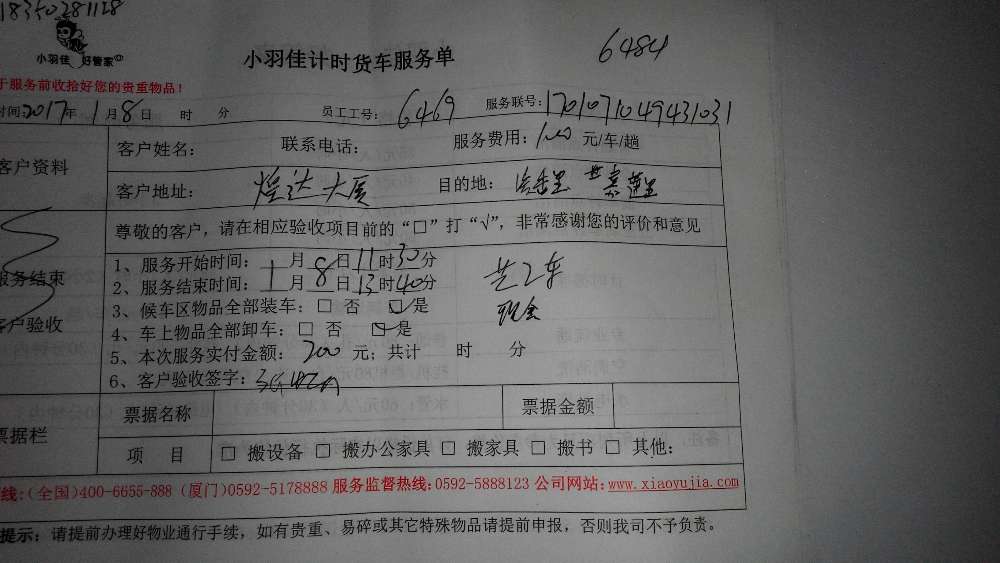 18350281128
小羽佳 好管家
小羽佳计时货车服务单
6484
于服务前收拾好您的贵重物品！
时间:2017年1月8日 时 分 员工工号: 6469 服务联号: 1701071049431031
客户资料
客户姓名: 联系电话: 服务费用: 100 元/车/趟
客户地址: 煌达大厦 目的地:
尊敬的客户，请在相应验收项目前的“□”打“√”，非常感谢您的评价和意见
服务结束
客户验收
1、服务开始时间: 1月8日11时30分
2、服务结束时间: 1月8日13时40分
3、候车区物品全部装车: □ 否 ☑是
4、车上物品全部卸车: □ 否 ☑是
5、本次服务实付金额: 200 元; 共计 时 分
6、客户验收签字:
共2车
现金
票据栏
票据名称 票据金额
项 目 □ 搬设备 □ 搬办公家具 □ 搬家具 □ 搬书 □ 其他:
线:(全国)400-6655-888 (厦门)0592-5178888 服务监督热线:0592-5888123 公司网站:www.xiaoyujia.com
提示: 请提前办理好物业通行手续，如有贵重、易碎或其它特殊物品请提前申报，否则我司不予负责。